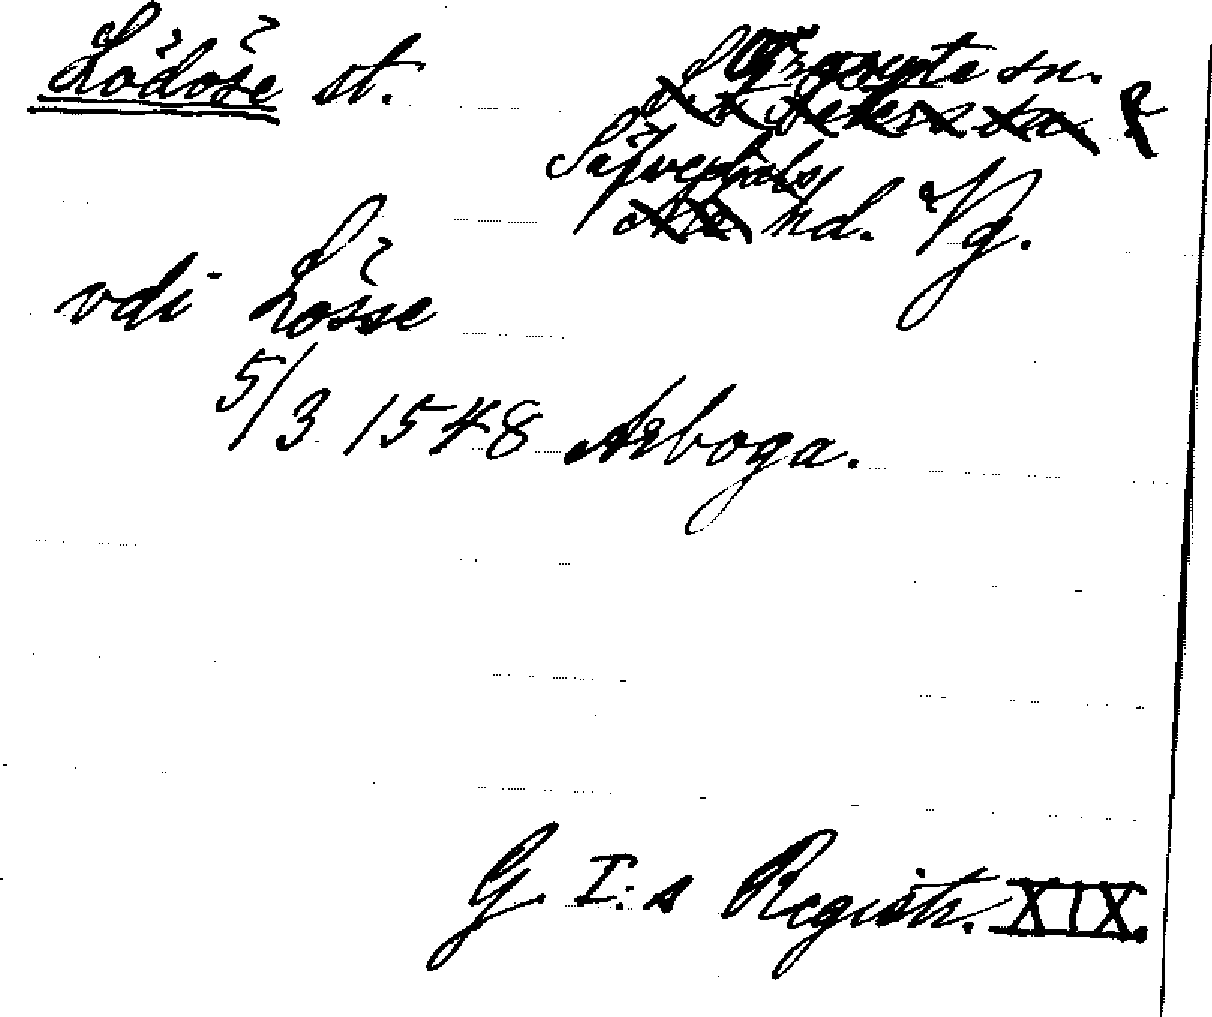 Lödöse st. Örgryte sn.
Säfvedals
hd. Vg.
vdi Lösse
5/3 1548 Arboga.
G. I:s Registr. XIX.